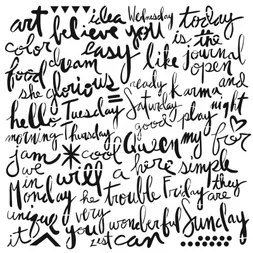 art believe idea Wednesday today
color you is the
easy like journal
food dream open
she glorious = ready karma and
hello Tuesday Saturday play night
morning Thursday good for
jam * cool Queen my
we will a here simple
in
Monday he trouble Friday they
are
unique very wonderful Sunday
it you zest can